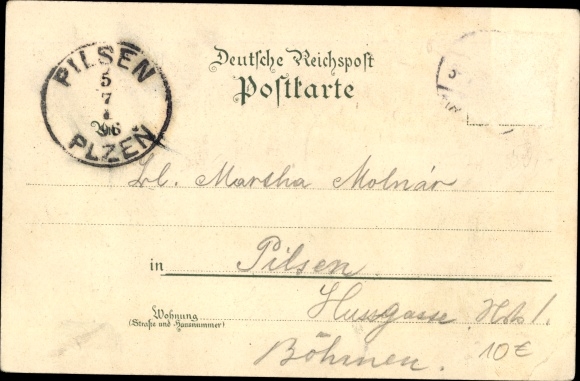 Deutsche Reichspost
Postkarte
PILSEN
5
7
96
PLZEŇ
5
Frl. Martha Molnár
in Pilsen.
Wohnung
(Straße und Hausnummer)
Hussgasse 1.
Böhmen.
10€